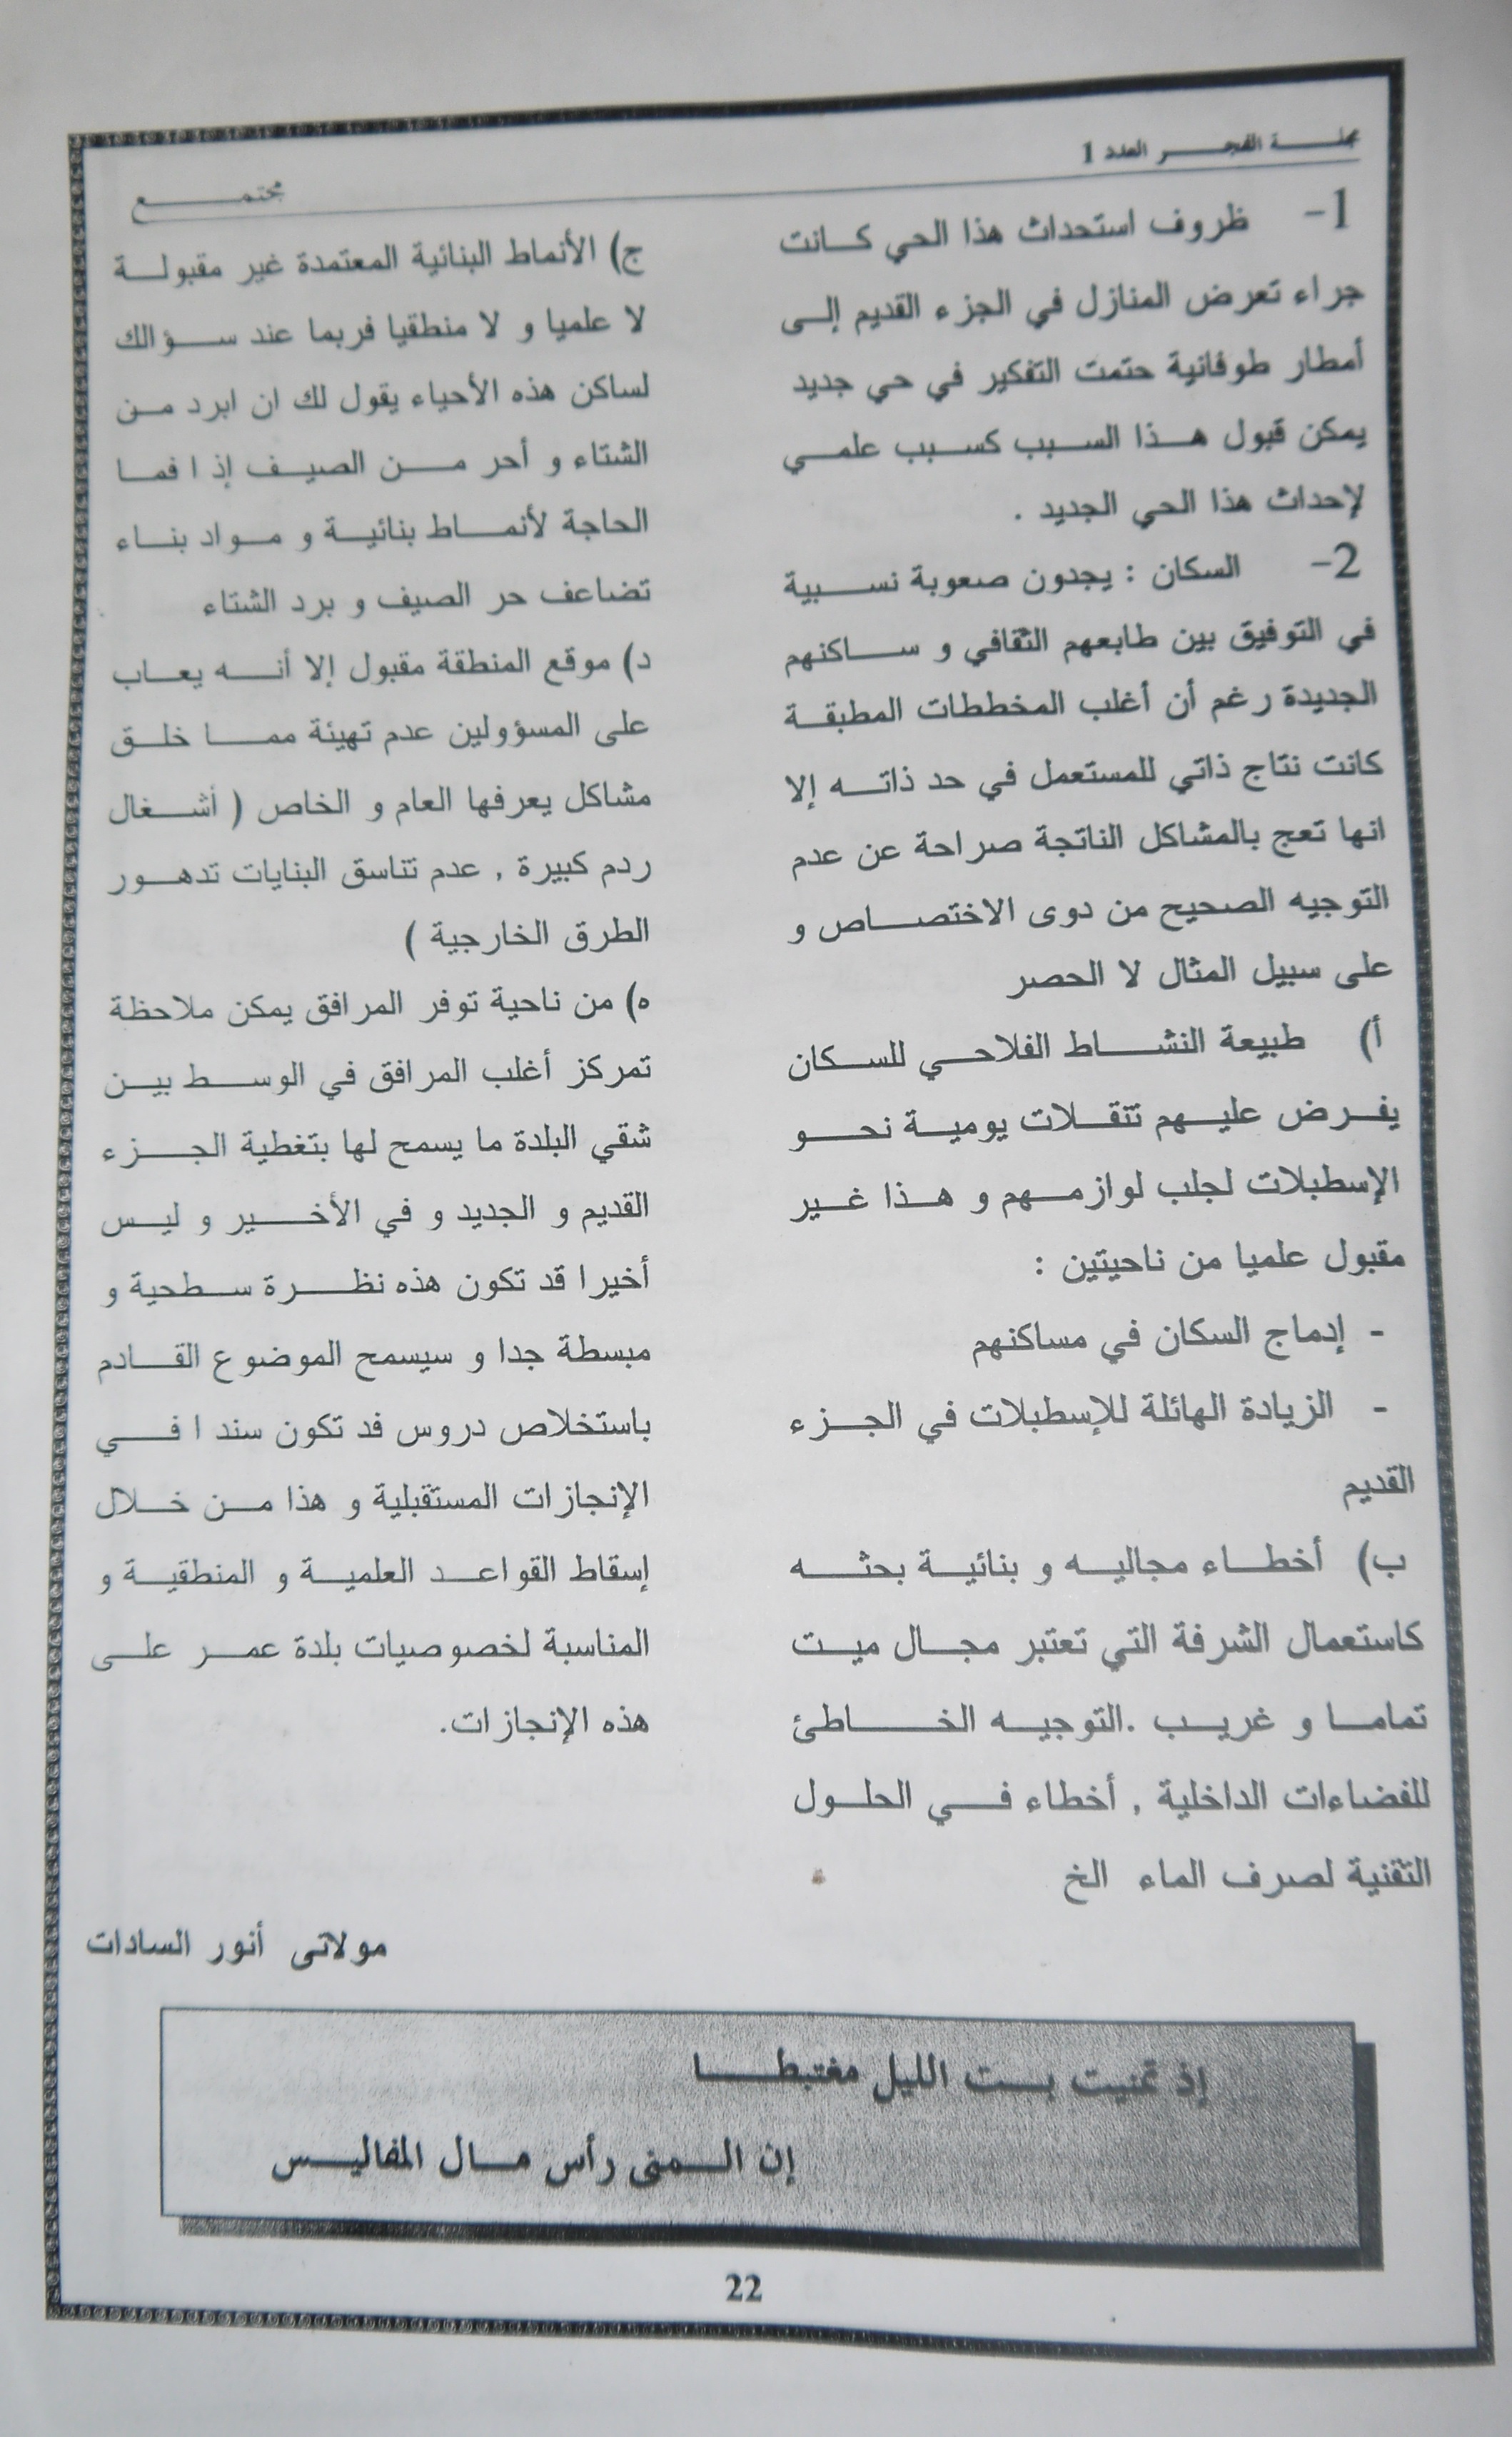 مجلــــة الفجـــــر العدد 1
مجتمــــــــع
1- ظروف استحداث هذا الحي كـــانت
جراء تعرض المنازل في الجزء القديم إلـى
أمطار طوفانية حتمت التفكير في حي جديد
يمكن قبول هــذا الســبب كســبب علمــي
لإحداث هذا الحي الجديد .
2- السكان : يجدون صعوبة نســـبية
في التوفيق بين طابعهم الثقافي و ســـاكنهم
الجديدة رغم أن أغلب المخططات المطبقــة
كانت نتاج ذاتي للمستعمل في حد ذاتـــه إلا
انها تعج بالمشاكل الناتجة صراحة عن عدم
التوجيه الصحيح من دوى الاختصـــاص و
على سبيل المثال لا الحصر
أ) طبيعة النشـــاط الفلاحــي للســكان
يفــرض عليــهم تتقــلات يوميــة نحـــو
الإسطبلات لجلب لوازمــهم و هــذا غــير
مقبول علميا من ناحيتين :
- إدماج السكان في مساكنهم
- الزيادة الهائلة للإسطبلات في الجــزء
القديم
ب) أخطــاء مجاليــه و بنائيــة بحثـــه
كاستعمال الشرفة التي تعتبر مجــال ميــت
تمامــا و غريــب .التوجيــه الخـــــاطئ
للفضاءات الداخلية , أخطاء فـــي الحلــول
التقنية لصرف الماء الخ
ج) الأنماط البنائية المعتمدة غير مقبولــة
لا علميا و لا منطقيا فربما عند ســـؤالك
لساكن هذه الأحياء يقول لك ان ابرد مــن
الشتاء و أحر مـــن الصيــف إذ ا فمــا
الحاجة لأنمـــاط بنائيــة و مــواد بنــاء
تضاعف حر الصيف و برد الشتاء
د) موقع المنطقة مقبول إلا أنـــه يعــاب
على المسؤولين عدم تهيئة ممـــا خلــق
مشاكل يعرفها العام و الخاص ( أشــغال
ردم كبيرة , عدم تتاسق البنايات تدهــور
الطرق الخارجية )
ه) من ناحية توفر المرافق يمكن ملاحظة
تمركز أغلب المرافق في الوســط بيــن
شقي البلدة ما يسمح لها بتغطية الجـــزء
القديم و الجديد و في الأخـــير و ليــس
أخيرا قد تكون هذه نظـــرة ســطحية و
مبسطة جدا و سيسمح الموضوع القــادم
باستخلاص دروس فد تكون سند ا فـــي
الإنجازات المستقبلية و هذا مــن خــلال
إسقاط القواعــد العلميــة و المنطقيــة و
المناسبة لخصوصيات بلدة عمــر علــى
هذه الإنجازات.
مولاتى أنور السادات
إذ تمنيت بـــت الليل مغتبطـــــا
إن الـــمنى رأس مـــال المفاليـــس
22